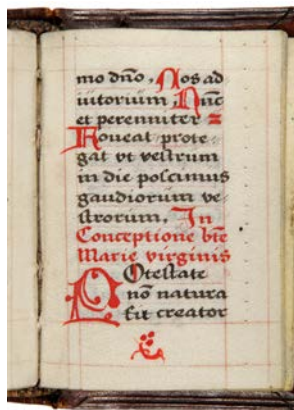 mo dño, Nos ad
iutorium, Nũc
et perenniter
Foveat prote
gat vt vestrum
in die poscimus
gaudiorum ve
strorum. In
Conceptione bte
Marie virginis
Potestate
nõ natura
fit creator